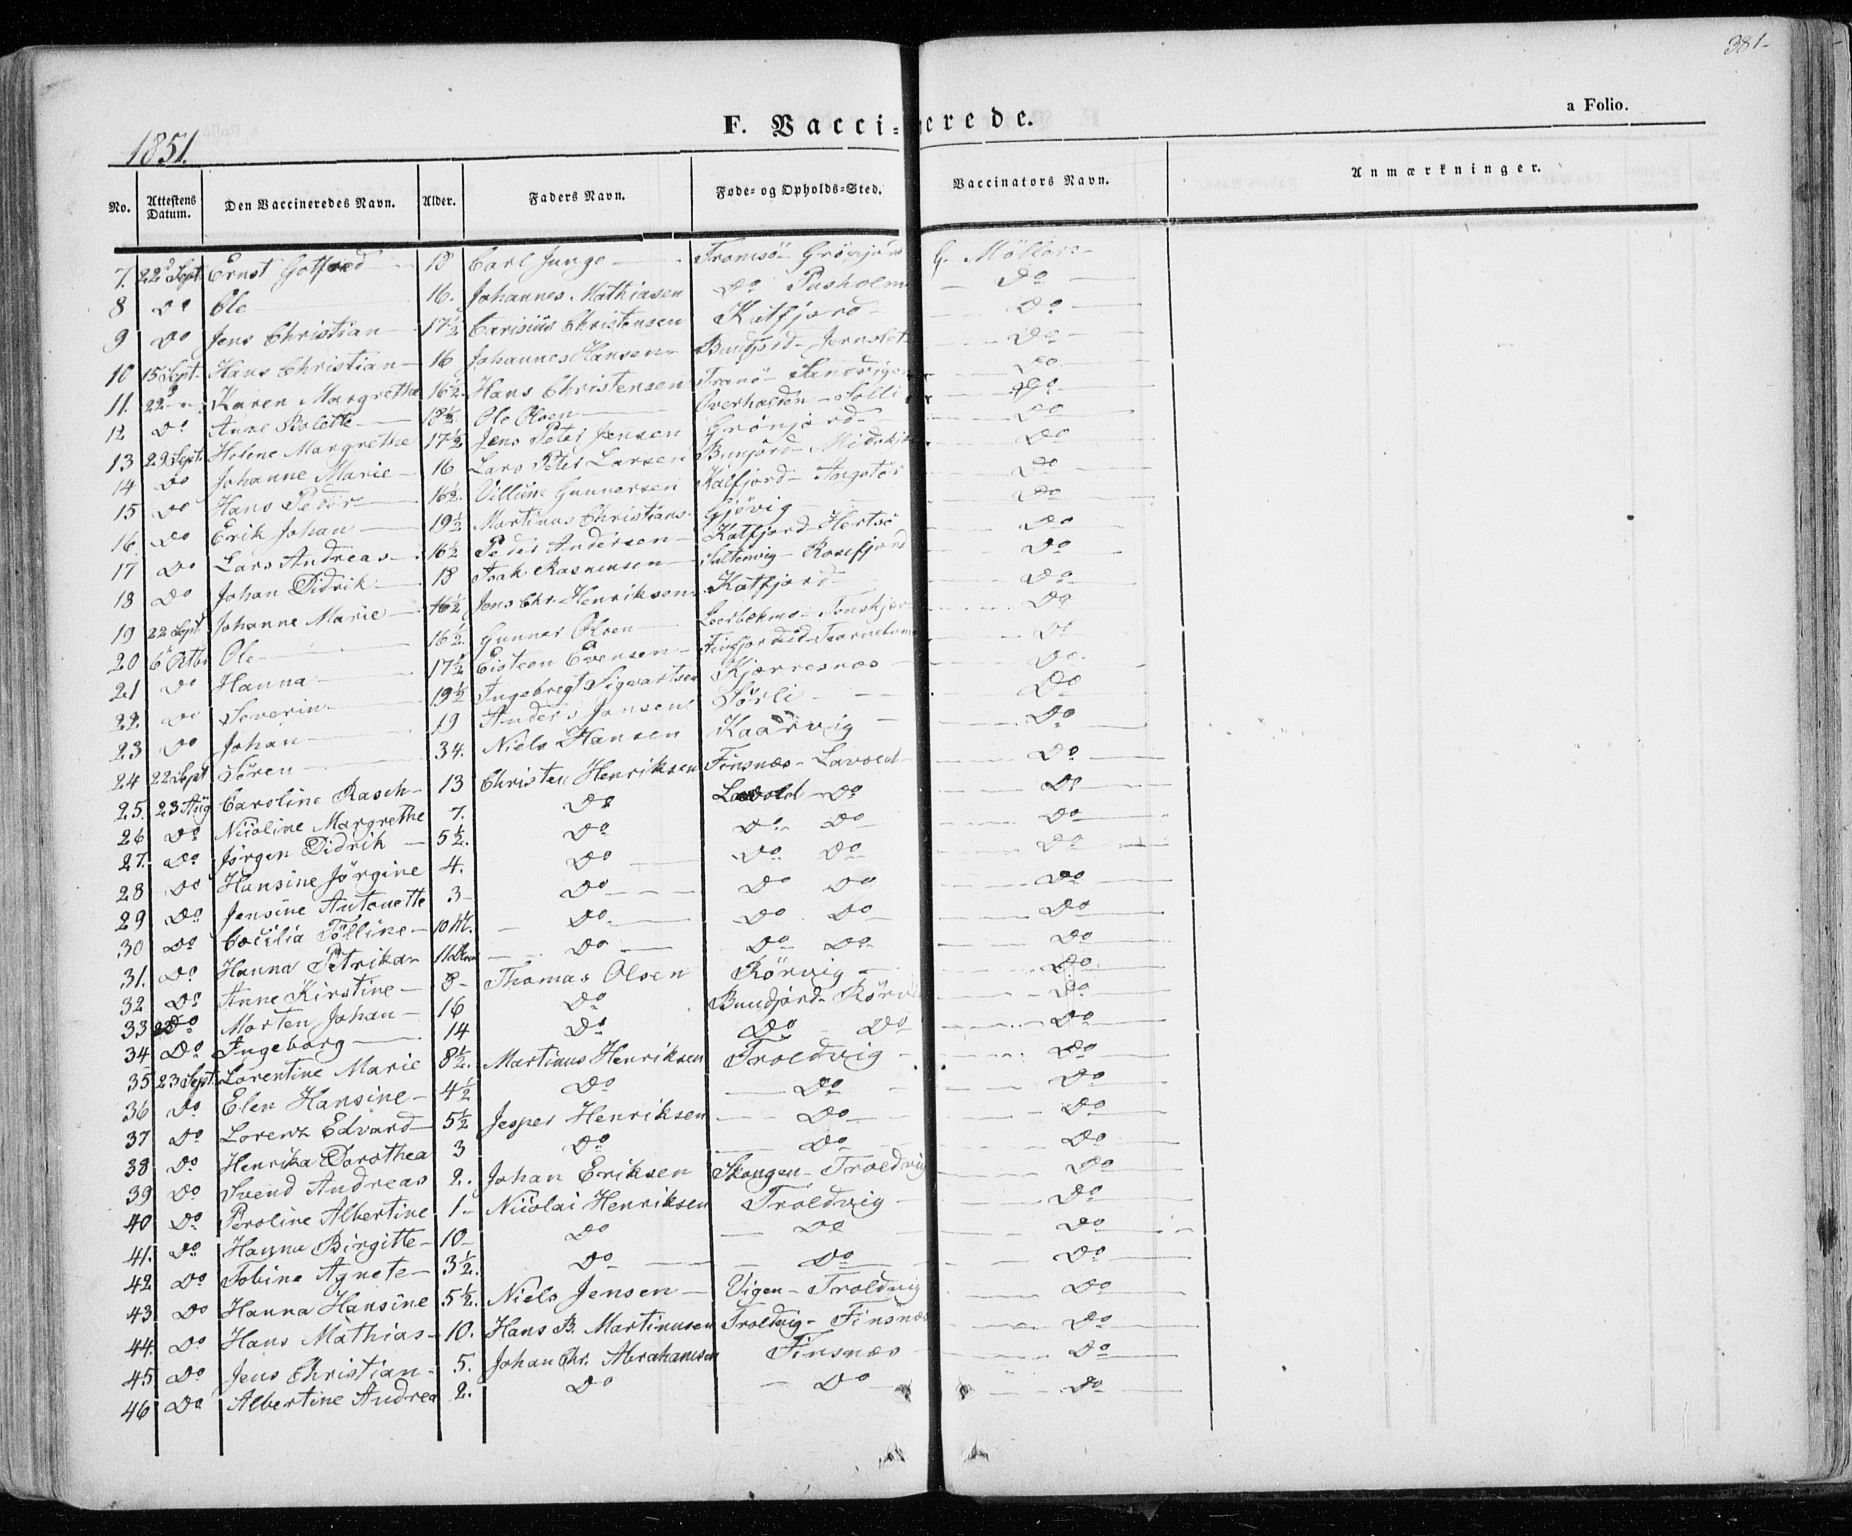 381-
a Folio.
F. Vaccinerede.
1851.
No. Attestens Datum. Den Vaccineredes Navn. Alder. Faders Navn. Føde- og Opholds-Sted. Vaccinators Navn. Anmærkninger.
7. 22 Sept. Ernst Gotfred 18 Carl Junge Tromsö- G. Möller
8 Do Ole 16. Johannes Mathiasen Do Pusholm Do
9 Do Jens Christian 17½ Christensen Katfjord Do
10 15 Sept. Hans Christian 16 Johannes Hansen Do
11. 22 Karen Margrethe 16½ Hans Christensen Tranö- Do
12 Do Anne 18½ Ole Olsen Overhalden- Do
13 29 Sept. Helene Margrethe 17½ Jens Peter Jensen Do
14 Do Johanne Marie 16 Lars Peter Larsen Do
15 Do Hans Peder 16½ Villum Gunnersen Kalfjord- Do
16. Do Erik Johan 19½ Martinus Christians. Gjövig Do
17 Do Lars Andreas 16½ Peder Andersen Katfjord- Do
18 Do Johan Didrik 18 Isak Rasmusen Do
19 22 Sept. Johanne Marie 16½ Jens Chr. Henriksen Katfjord Do
20 6 Octbr Ole 16½ Gunner Olsen Do
21 Do Hanna 17½ Eisteen Evensen Do
22. Do Severin 19½ Ingebregt Sigvartsen Kjærresnæs Do
23 Do Johan 19 Anders Jansen Sörli Do
24 22 Sept Sören 34. Niels Hansen Kaarvig Do
25. 23 Aug Caroline Rasch 13 Christen Henriksen Finsnæs- Lavold Do
26 Do Nicoline Margrethe 7. Do Lavold Do Do
27. Do Jörgen Didrik 5½. Do Do Do Do
28 Do Hansine Jörgine 4. Do Do Do Do
29 Do Jensine Antonette 3- Do Do Do Do
30 Do Cæcilia Tölline 10 M. Do Do Do Do
31. Do Hanna Petrika 11 Do Do Do Do
32 Do Anne Kirstine 3- Thomas Olsen Rörvig Do
33 Do Morten Johan 16 Do Bundfjord- Do
34 Do Ingeborg 14 Do Do Do Do
35 23 Sept. Lorentine Marie 8½. Martinus Henriksen Troldvig Do
36 Do Elen Hansine 4½ Do Do Do
37 Do Lorenz Edvard 5½ Jesper Henriksen Do Do
38 Do Henrika Dorothea 3 Do Do Do
39 Do Svend Andreas 2. Johan Eriksen Skougen- Troldvig Do
40 Do Peroline Albertine 1- Nicolai Henriksen Troldvig Do
41. Do Hanna Birgitte 10 Do Do Do
42 Do Tobine Agnete 3½. Do Do Do
43 Do Hanna Hansine 5½. Niels Jensen Vigen- Troldvig Do
44. Do Hans Mathias 10. Hans B. Martinusen Troldvig- Finsnæs Do
45 Do Jens Christian 5. Johan Chr. Abrahamsen Finsnæs Do
46 Do Albertine Andrea 2. Do Do Do